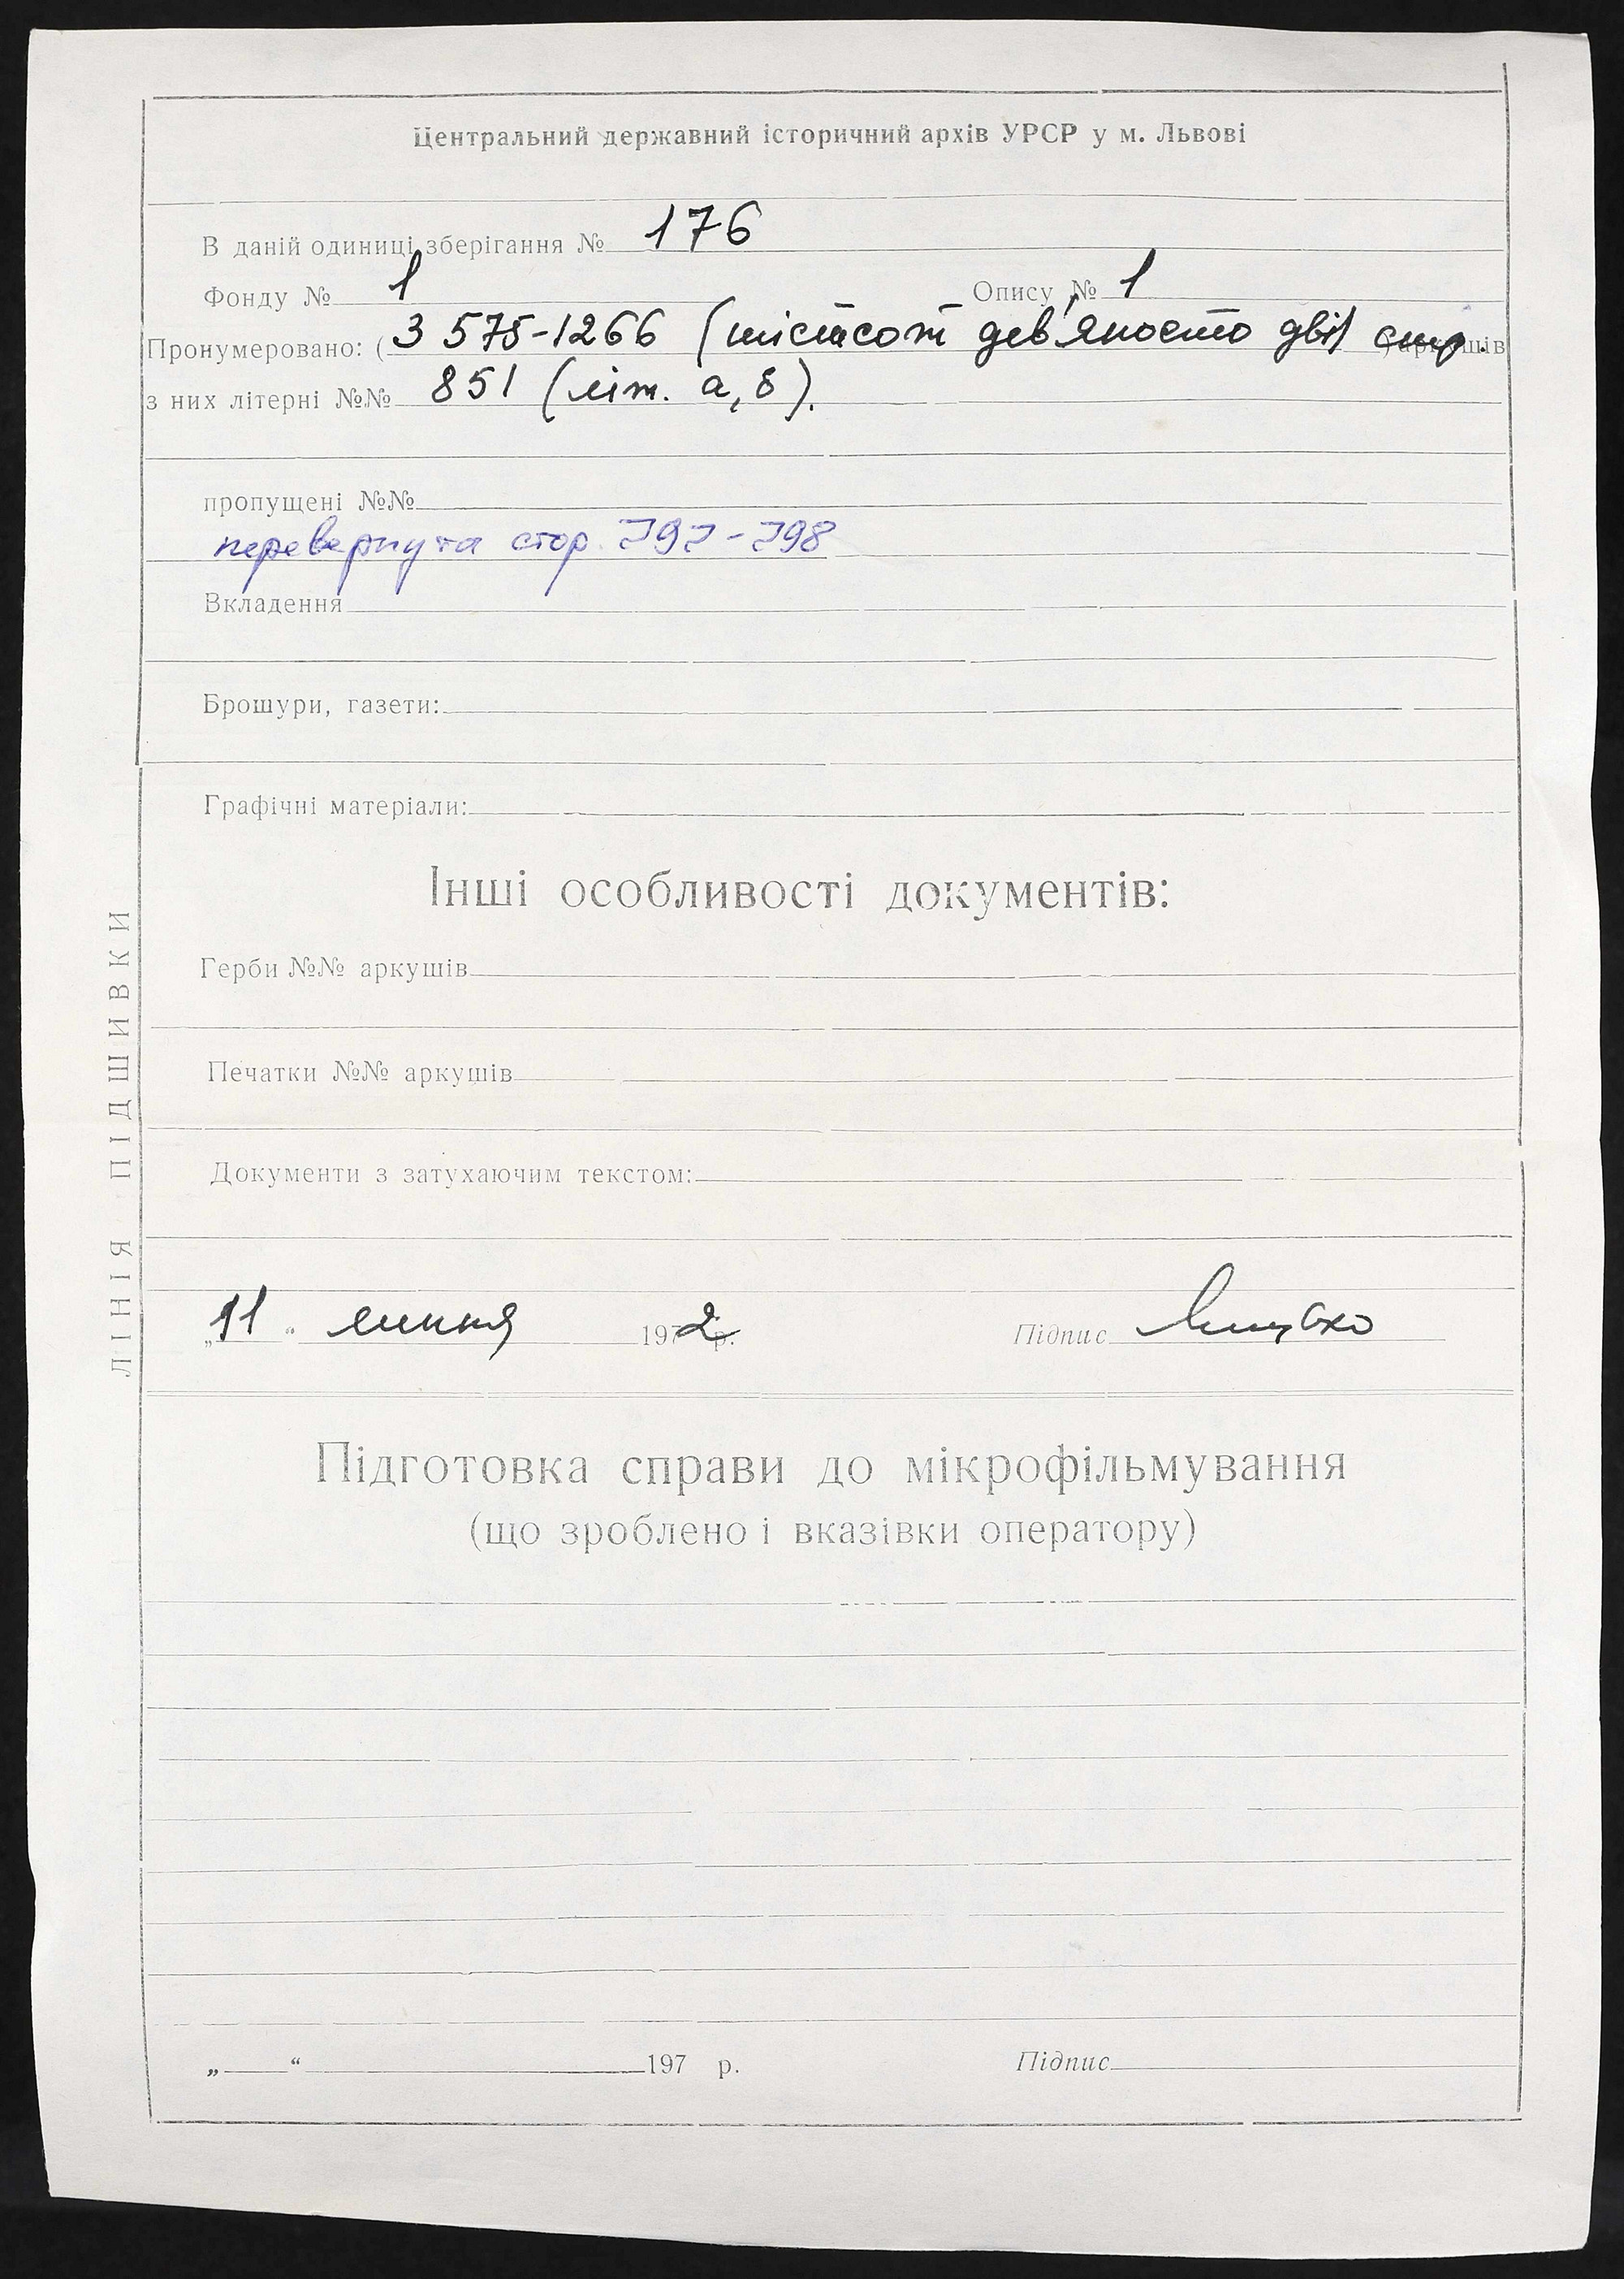 Центральний державний історичний архів УРСР у м. Львові
В даній одиниці зберігання № 176
Фонду № 1 Опису № 1
Пронумеровано: ( З 575-1266 (шістсот дев'яносто дві) стор. ) аркушів
з них літерні №№ 851 (літ. а, б).
пропущені №№
перевернута стор 797-798
Вкладення
Брошури, газети:
Графічні матеріали:
Інші особливості документів:
Герби №№ аркушів
Печатки №№ аркушів
Документи з затухаючим текстом:
„11“ липня 1972 р. Підпис
Підготовка справи до мікрофільмування
(що зроблено і вказівки оператору)
„ “ 197 р. Підпис
ЛІНІЯ ПІДШИВКИ